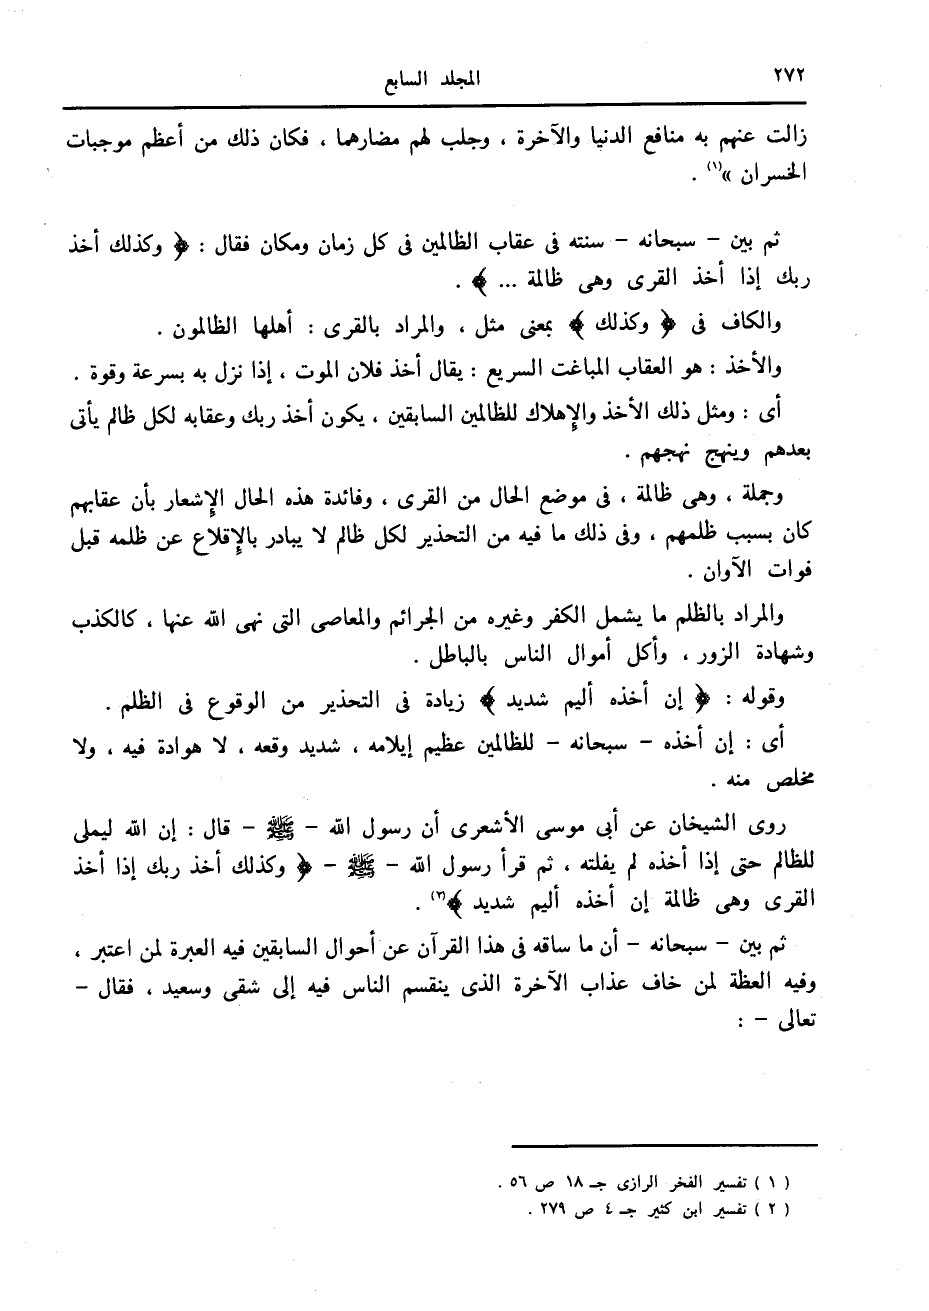 ٢٧٢
المجلد السابع
زالت عنهم به منافع الدنيا والآخرة ، وجلب لهم مضارهما ، فكان ذلك من أعظم موجبات
الخسران »(١) .
ثم بين – سبحانه – سنته فى عقاب الظالمين فى كل زمان ومكان فقال : ﴿ وكذلك أخذ
ربك إذا أخذ القرى وهى ظالمة ... ﴾ .
والكاف فى ﴿ وكذلك ﴾ بمعنى مثل ، والمراد بالقرى : أهلها الظالمون .
والأخذ : هو العقاب المباغت السريع : يقال أخذ فلان الموت ، إذا نزل به بسرعة وقوة .
أى : ومثل ذلك الأخذ والإهلاك للظالمين السابقين ، يكون أخذ ربك وعقابه لكل ظالم يأتى
بعدهم وينهج نهجهم .
وجملة ، وهى ظالمة ، فى موضع الحال من القرى ، وفائدة هذه الحال الإشعار بأن عقابهم
كان بسبب ظلمهم ، وفى ذلك ما فيه من التحذير لكل ظالم لا يبادر بالإقلاع عن ظلمه قبل
فوات الآوان .
والمراد بالظلم ما يشمل الكفر وغيره من الجرائم والمعاصى التى نهى الله عنها ، كالكذب
وشهادة الزور ، وأكل أموال الناس بالباطل .
وقوله : ﴿ إن أخذه أليم شديد ﴾ زيادة فى التحذير من الوقوع فى الظلم .
أى : إن أخذه – سبحانه – للظالمين عظيم إيلامه ، شديد وقعه ، لا هوادة فيه ، ولا
مخلص منه .
روى الشيخان عن أبى موسى الأشعرى أن رسول الله – ﷺ – قال : إن الله ليملى
للظالم حتى إذا أخذه لم يفلته ، ثم قرأ رسول الله – ﷺ – ﴿ وكذلك أخذ ربك إذا أخذ
القرى وهى ظالمة إن أخذه أليم شديد ﴾(٢) .
ثم بين – سبحانه – أن ما ساقه فى هذا القرآن عن أحوال السابقين فيه العبرة لمن اعتبر ،
وفيه العظة لمن خاف عذاب الآخرة الذى ينقسم الناس فيه إلى شقى وسعيد ، فقال –
تعالى – :
( ١ ) تفسير الفخر الرازى جـ ١٨ ص ٥٦ .
( ٢ ) تفسير ابن كثير جـ ٤ ص ٢٧٩ .